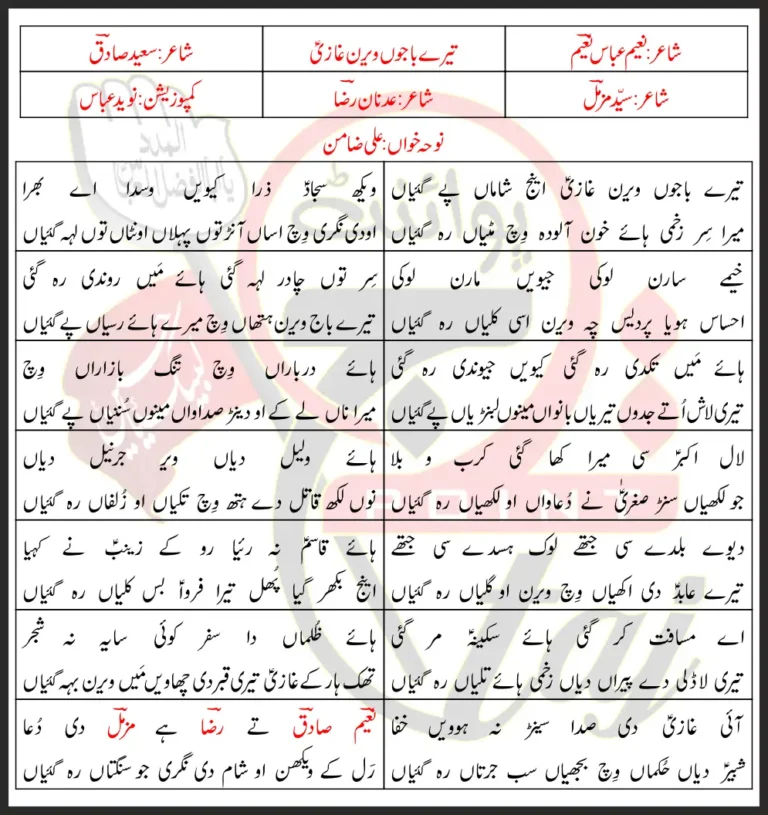 شاعر: نعیم عباس نعیمؔ
تیرے باجوں ویرن غازیؑ
شاعر: سعید صادقؔ
شاعر: سیّد مزملؔ
شاعر: عدنان رضاؔ
کمپوزیشن: نوید عباس
نوحہ خواں: علی ضامن
تیرے باجوں ویرن غازیؑ اینج شاماں پے گئیاں
ویکھ سجادؑ ذرا کیویں وسدا اے بھرا
میرا سِر زخمی ہائے خون آلودہ وِچ مٹیاں رہ گئیاں
اودی نگری وِچ اساں آنڑ توں پہلاں اونٹاں توں لہہ گئیاں
خیمے سارن لوکی جیویں مارن لوکی
سِر توں چادر لہہ گئی ہائے مَیں روندی رہ گئی
احساس ہویا پردیس چہ ویرن اسی کلیاں رہ گئیاں
تیرے باج ویرن ہتھاں وِچ میرے ہائے رسیاں پے گئیاں
ہائے مَیں تکدی رہ گئی کیویں جیوندی رہ گئی
ہائے درباراں وِچ تنگ بازاراں وِچ
تیری لاش اُتے جدوں تیریاں بانواں مینوں لبنڑیاں پے گئیاں
میرا ناں لے کے او دینڑ صداواں مینوں سُنڑیاں پے گئیاں
لال اکبرؑ سی میرا کھا گئی کرب و بلا
ہائے ولیل دیاں ویرِ جرنیل دیاں
جو لکھیاں سنڑ صغریٰؑ نے دُعاواں او لکھیاں رہ گئیاں
نوں لکھ قاتل دے ہتھ وِچ تکیاں او زُلفاں رہ گئیاں
دیوے بلدے سی جتھے لوک ہسدے سی جتھے
ہائے قاسمؑ نہ رئیا رو کے زینبؑ نے کہیا
تیرے عابدؑ دی اکھیاں وِچ ویرن او گلیاں رہ گئیاں
اینج بکھر گیا پُھل تیرا فرواؑ بس کلیاں رہ گئیاں
اے مسافت کر گئی ہائے سکینہؑ مر گئی
ہائے ظُلماں دا سفر کوئی سایہ نہ شجر
تیری لاڈلی دے پیراں دیاں زخمی ہائے تلیاں رہ گئیاں
تھک ہار کے غازیؑ تیری قبر دی چھاویں مَیں ویرن بہہ گئیاں
آئی غازیؑ دی صدا سینڑ نہ ہوویں خفا
نعیمؔ صادقؔ تے رضاؔ ہے مزملؔ دی دُعا
شبیرؑ دیاں حُکماں وِچ بجھیاں سب جرتاں رہ گئیاں
رَل کے ویکھن او شام دی نگری جو سنگتاں رہ گئیاں
المدد
یا ابالفضل العباس
لبیک یا حسین
پوائنٹ
POINT
taj